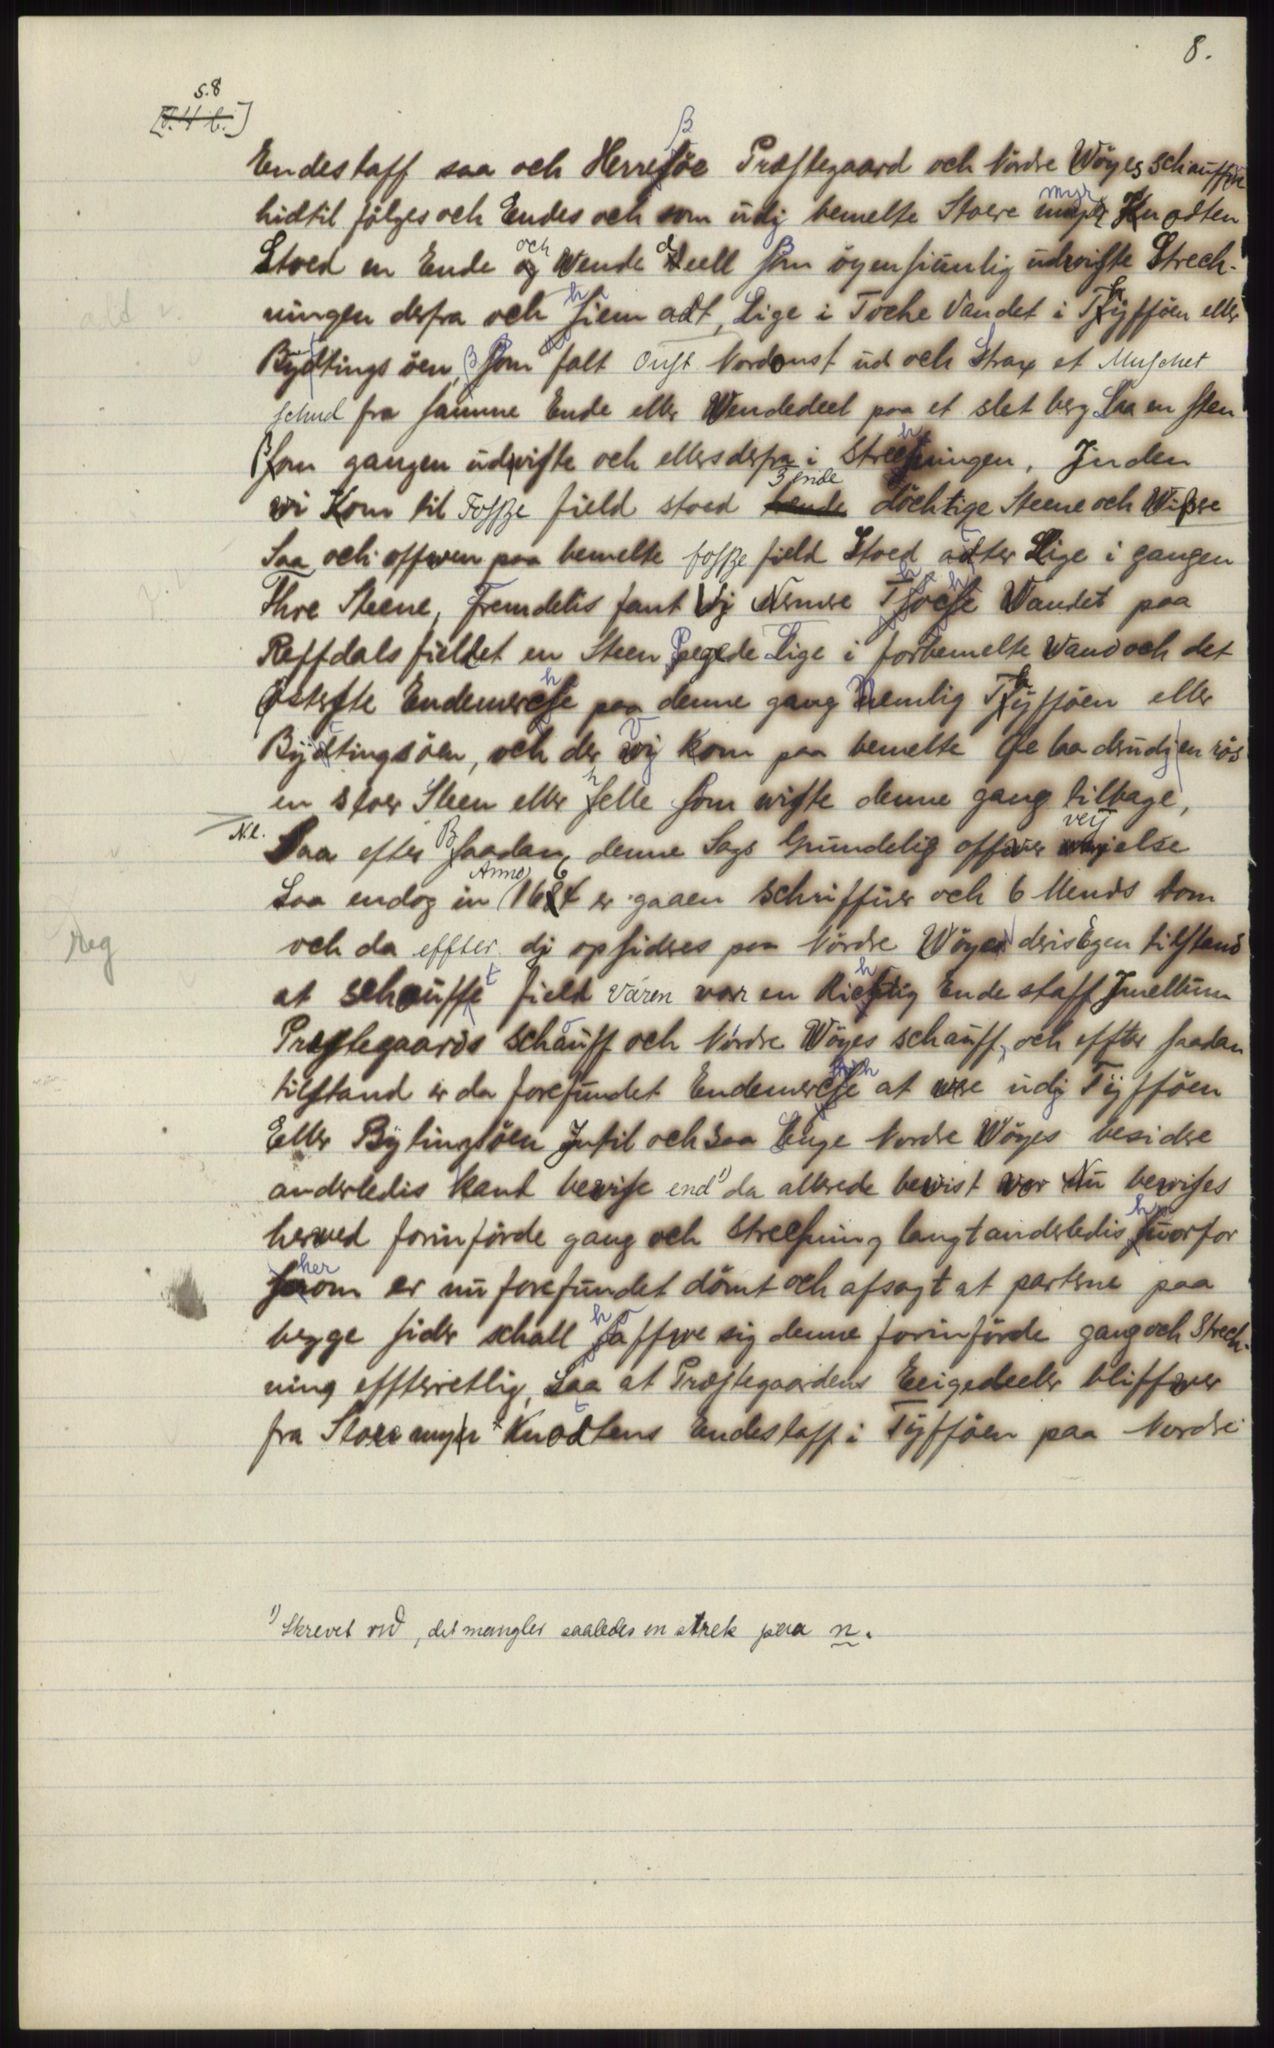 8.
s. 8
Endestaff saa och Herresöe Præstegaard och Nordre Wöyes schauffue
hidtil fölges och Endes och som udj bemelte Stoere myr Knodten
Stoed en Ende och Wende deell som öyensiunlig udviste Strech-
ningen derfra och hiem adt, Lige i Toche Vandet i Tyfföen eller
Bytings öen, som falt Oust Nordoust ud och Strax et Muschet
schud fra samme Ende eller Wendedeel paa et slet berg Laa en sten
som gangen udviste och ellers derfra i Strechningen, Jnden
wi Kom til Fosse field stoed 3ende döchtige Steene och Wißere
Saa och offwen paa bemelte fosse field Stoed atter Lige i gangen
Thre Steene, Fremdelis fant Vj Nermere Toche Vandet paa
Reffdals fieldet en Steen Pegede Lige i forbemelte Wand och det
Österste Endemerche paa denne gang Nemlig Tyfföen eller
Bytingsöen, och der Vj kom paa bemelte Öe laa derudj en rös
en stoer Steen eller helle som wiste denne gang tilbage,
N.l.
Saa efter saadan denne Sags Grundelig offwer veyelse
Saa endog in Anno 1664 er gaaen schriffuer och 6 Mends Dom
och da effter dj opsidres paa Nordre Wöyes deris Egen tilstand
reg
at schaufft field Våren var en Richtig Ende staff Jmellum
Præstegaards schauff och Nordre Wöyes schauff, och effter saadan
tilstand er da forefundet Endemerche at were udj Tyfföen
Eller Bytingsöen Jntil och saa Lenge Nordre Wöyes besidere
anderledis kand bewise end 1) da allerede bewist var Nu bewises
herwed forinförde gang och Strechning langt anderledis huorfor
herom er nu forefundet dömt och afsagt at parterne paa
begge sider schall haffwe sig denne forinförde gang och Strech-
ning effterretlig, Saa at Præstegaardens Eeigedeeler bliffwer
fra Stoere myr Knottens Endestaff i Tyfföen paa Nordre
1) Skrevet , det mangler saaledes en strek paa n.